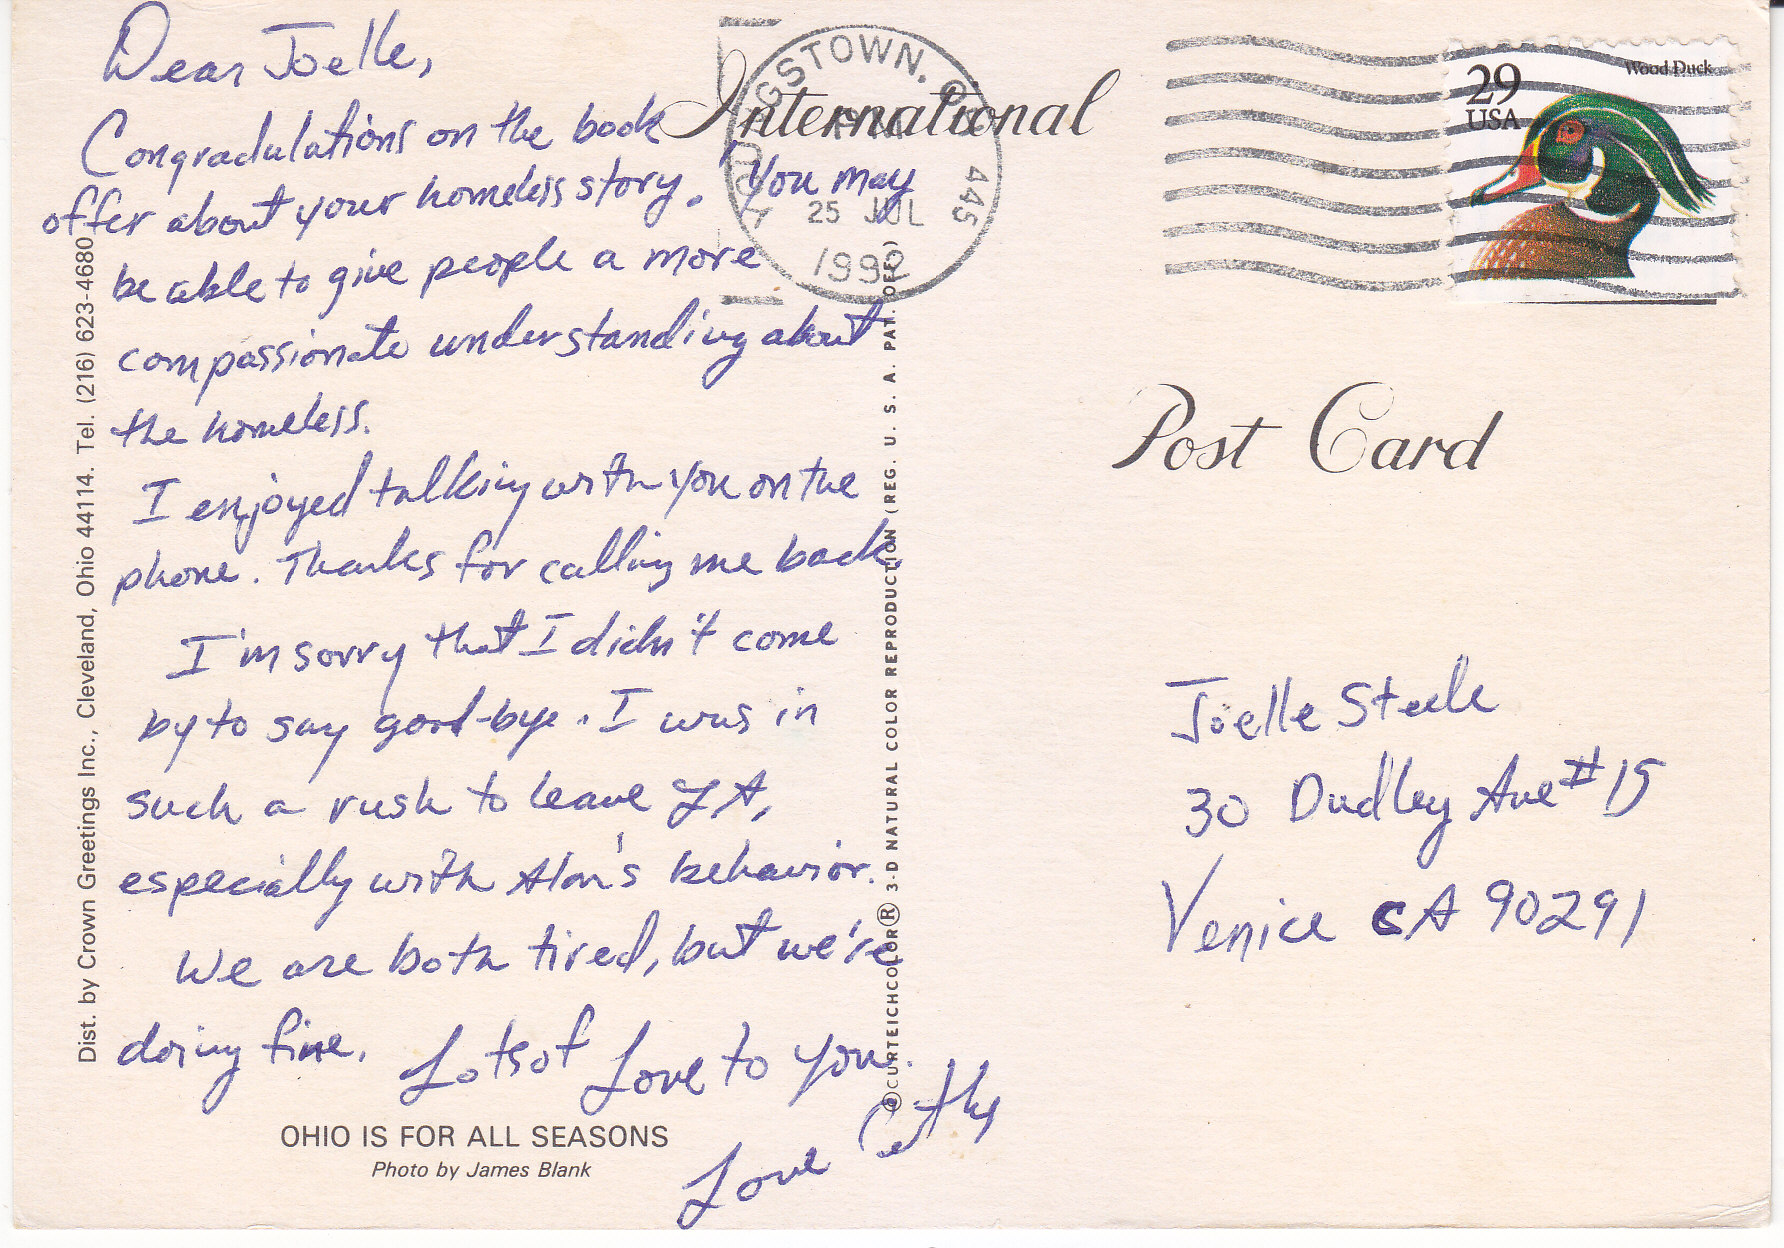 Dear Joelle,
Congradulations on the book
offer about your homeless story. You may
be able to give people a more
compassionate understanding about
the homeless.
I enjoyed talking with you on the
phone. Thanks for calling me back.
I'm sorry that I didn't come
by to say good-bye. I was in
such a rush to leave LA,
especially with Alan's behavior.
We are both tired, but we're
doing fine. Lots of Love to you.
Love Cathy
OHIO IS FOR ALL SEASONS
Photo by James Blank
Dist. by Crown Greetings Inc., Cleveland, Ohio 44114. Tel. (216) 623-4680
©CURTEICHCOLOR® 3-D NATURAL COLOR REPRODUCTION (REG. U. S. A. PAT. OFF.)
International
Post Card
YOUNGSTOWN, OH 445
PM
25 JUL
1992
Wood Duck
29
USA
Joelle Steele
30 Dudley Ave #15
Venice CA 90291